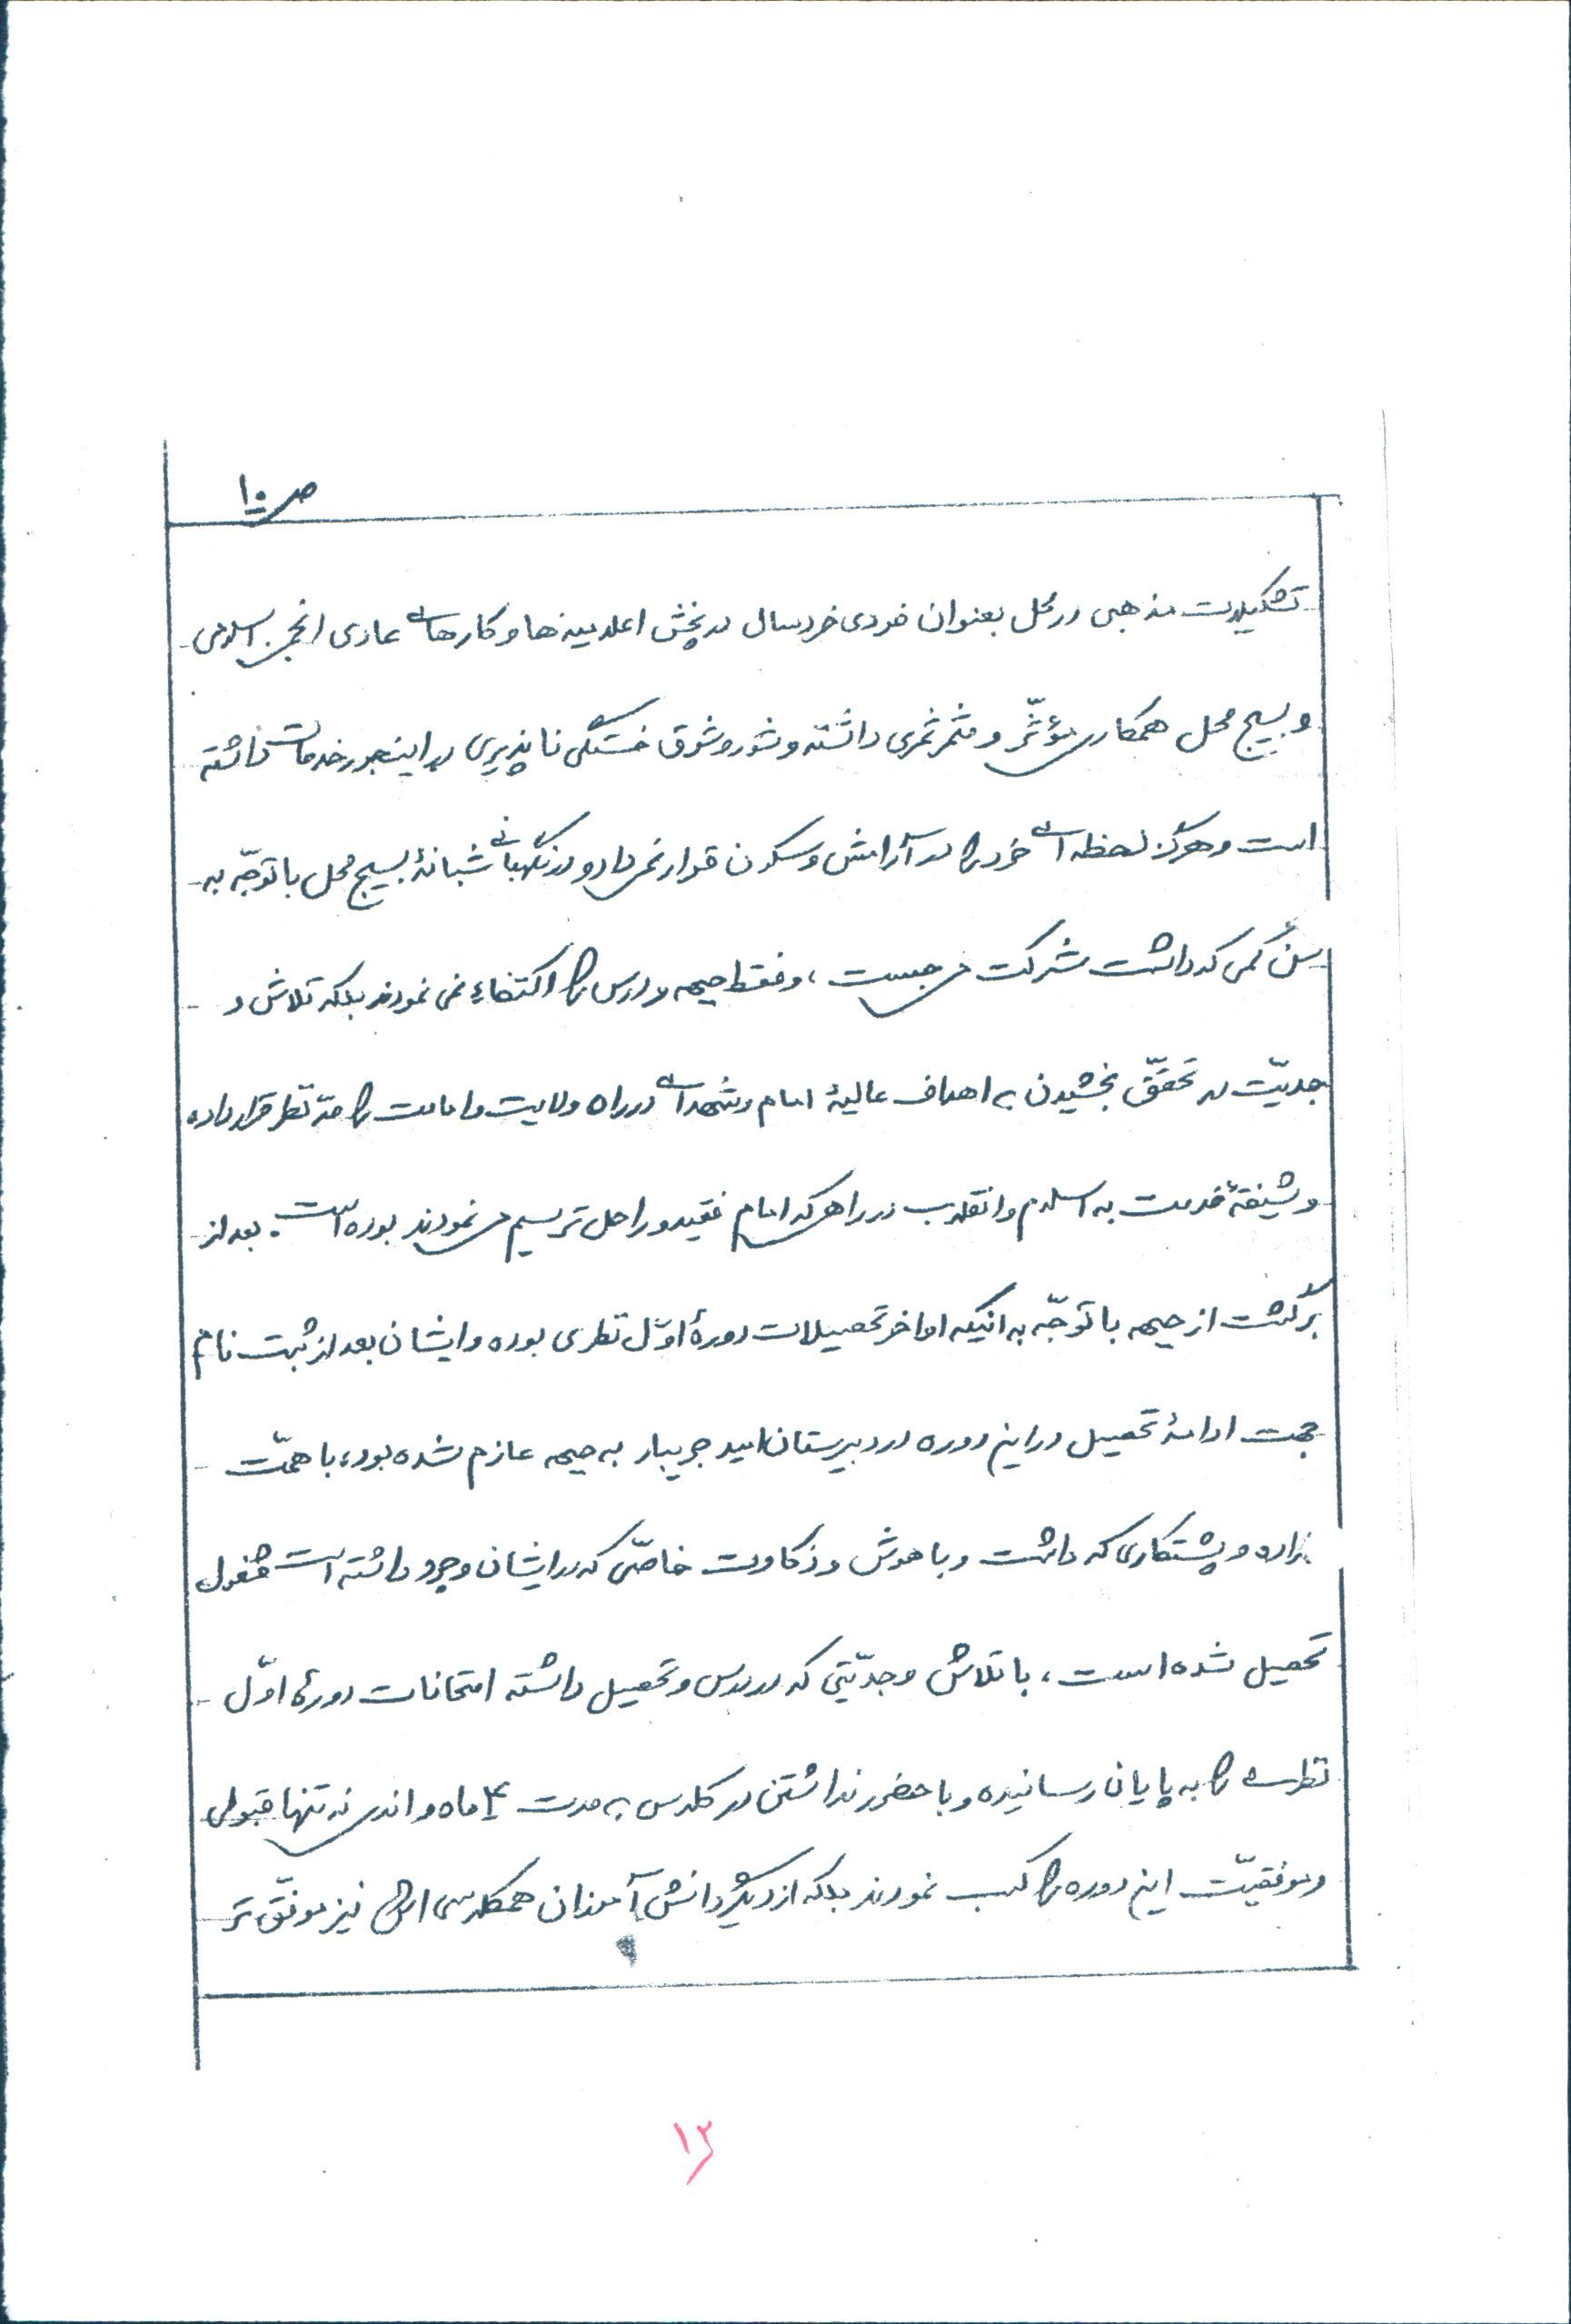 ص ۱۰
تشکیلات مذهبی در محل بعنوان فردی خردسال در پخش اعلامیه‌ها و کارهای عادی انجمن اسلامی
و بسیج محل همکاری مؤثّر و مثمرثمری داشته و شور و شوق خستگی ناپذیری در اینجور خدمات داشته
است و هرگز لحظه‌ای خود را در آرامش و سکون قرار نمی‌داد و در نگهبانی شبانهٔ بسیج محل با توجّه به
سنّ کمی که داشت شرکت می‌جست، و فقط جبهه و درس را اکتفاء نمی نمودند بلکه تلاش و
جدیّت در تحقّق بخشیدن به اهداف عالیهٔ امام و شهدای در راه ولایت و امامت را مدّ نظر قرار داده
و شیفتهٔ خدمت به اسلام و انقلاب در راهی که امام فقید و راحل ترسیم می‌نمودند بوده است. بعد از
برگشت از جبهه با توجّه به اینکه اواخر تحصیلات دورهٔ اوّل نظری بوده و ایشان بعد از ثبت نام
جهت ادامهٔ تحصیل در این دوره در دبیرستان امید جویبار به جبهه عازم شده بود، با همّت
اراده و پشتکاری که داشت و با هوش و ذکاوت خاصّی که در ایشان وجود داشته است مشغول
تحصیل شده است، با تلاش و جدیّتی که در درس و تحصیل داشته امتحانات دورهٔ اوّل
نظری را به پایان رسانیده و با حضور نداشتن در کلاس به مدت ۴ ماه و اندی نه تنها قبولی
و موفقیّت این دوره را کسب نمودند بلکه از دیگر دانش آموزان همکلاسی اش نیز موفّق تر
۱۳